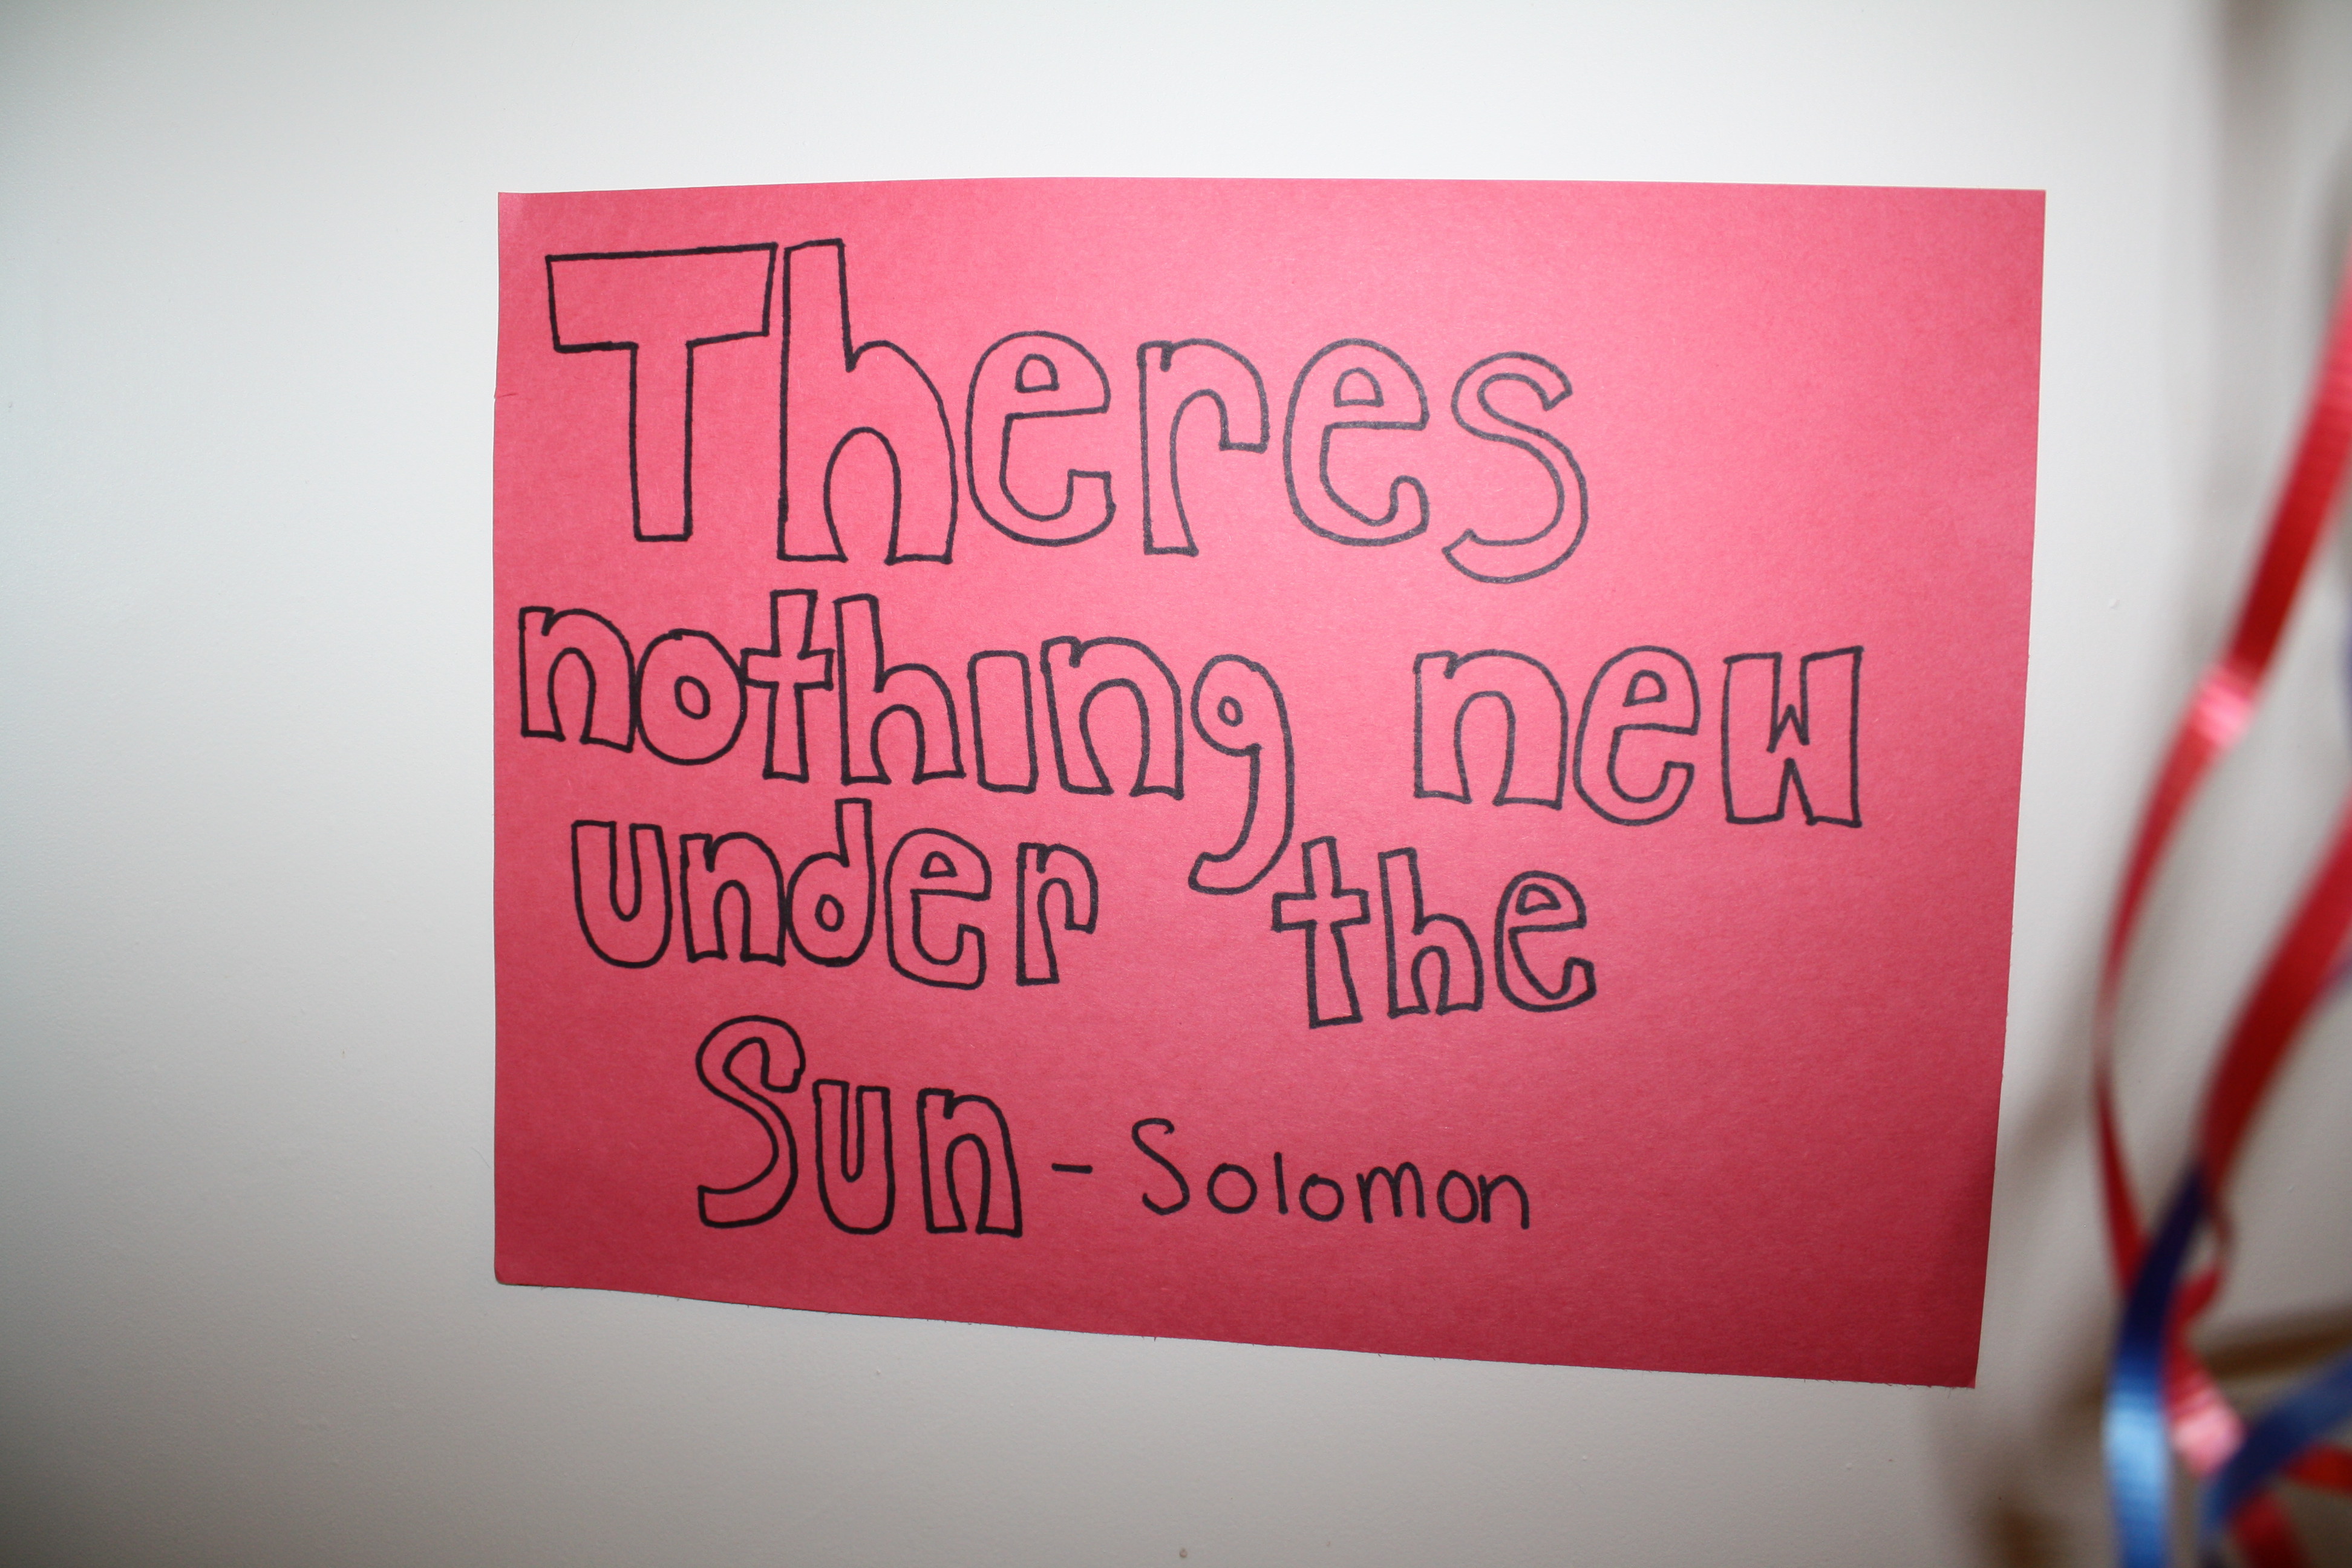 Theres
nothing new
under the
Sun - Solomon